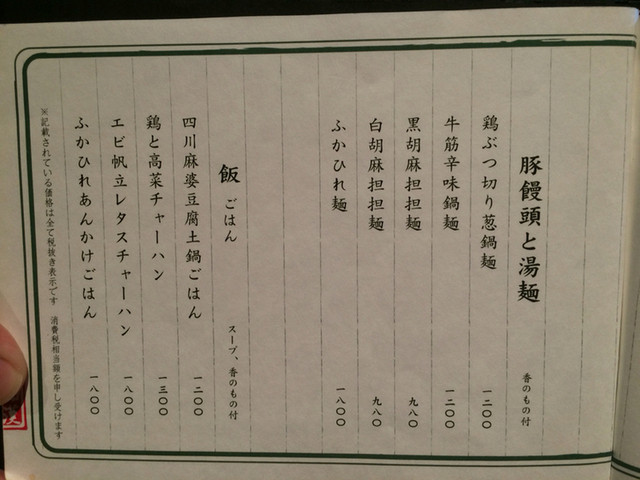 豚饅頭と湯麺 香のもの付
鶏ぶつ切り葱鍋麺 一二〇〇
牛筋辛味鍋麺 一二〇〇
黒胡麻担担麺 九八〇
白胡麻担担麺 九八〇
ふかひれ麺 一八〇〇
飯 ごはん スープ、香のもの付
四川麻婆豆腐土鍋ごはん 一二〇〇
鶏と高菜チャーハン 一三〇〇
エビ帆立レタスチャーハン 一八〇〇
ふかひれあんかけごはん 一八〇〇
※記載されている価格は全て税抜き表示です 消費税相当額を申し受けます